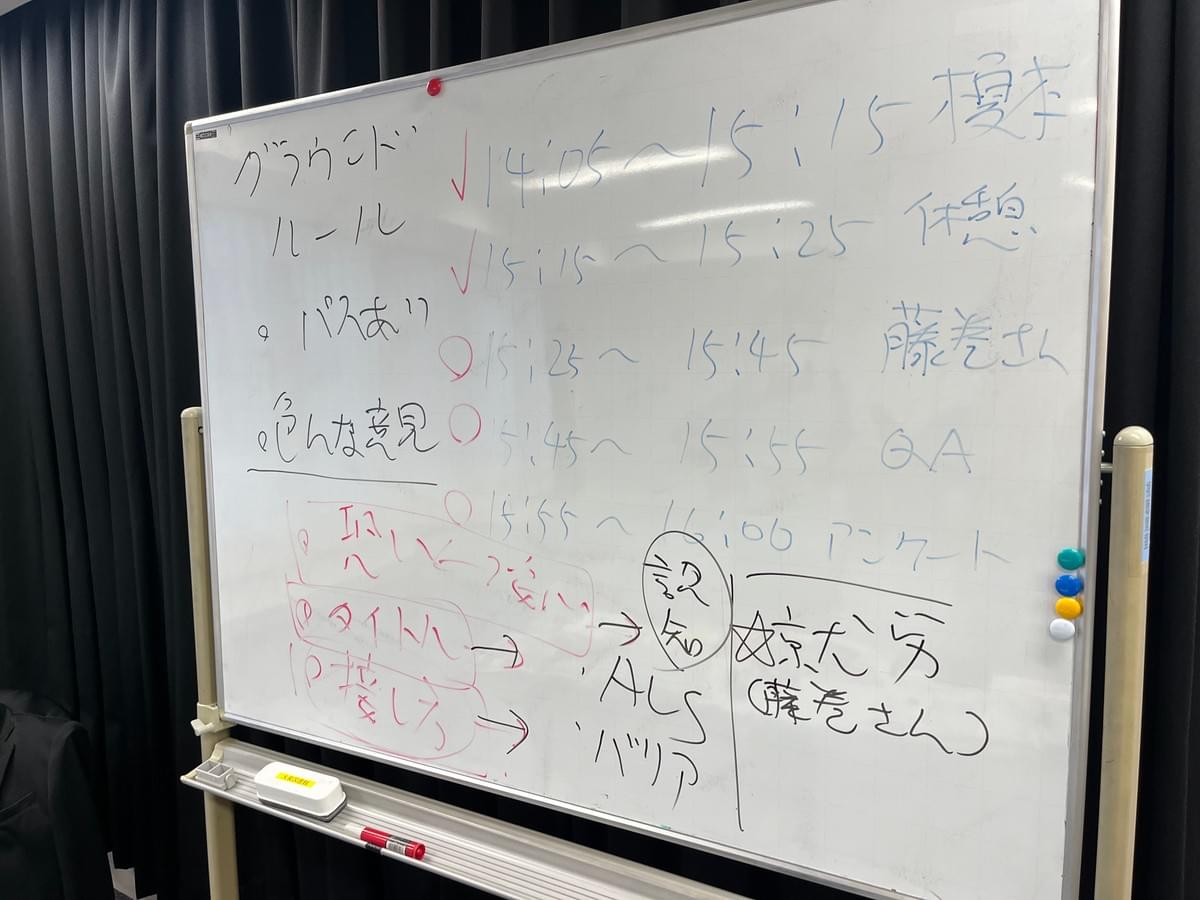 グラウンド
ルール
。パスあり
。色んな意見
✓ 14:05～15:15 榎本
✓ 15:15～15:25 休憩
○ 15:25～15:45 藤巻さん
○ 15:45～15:55 QA
○ 15:55～16:00 アンケート
取り
タイトル
接し方
→
→
→
認知
・ALS
・バリア
(藤巻さん)